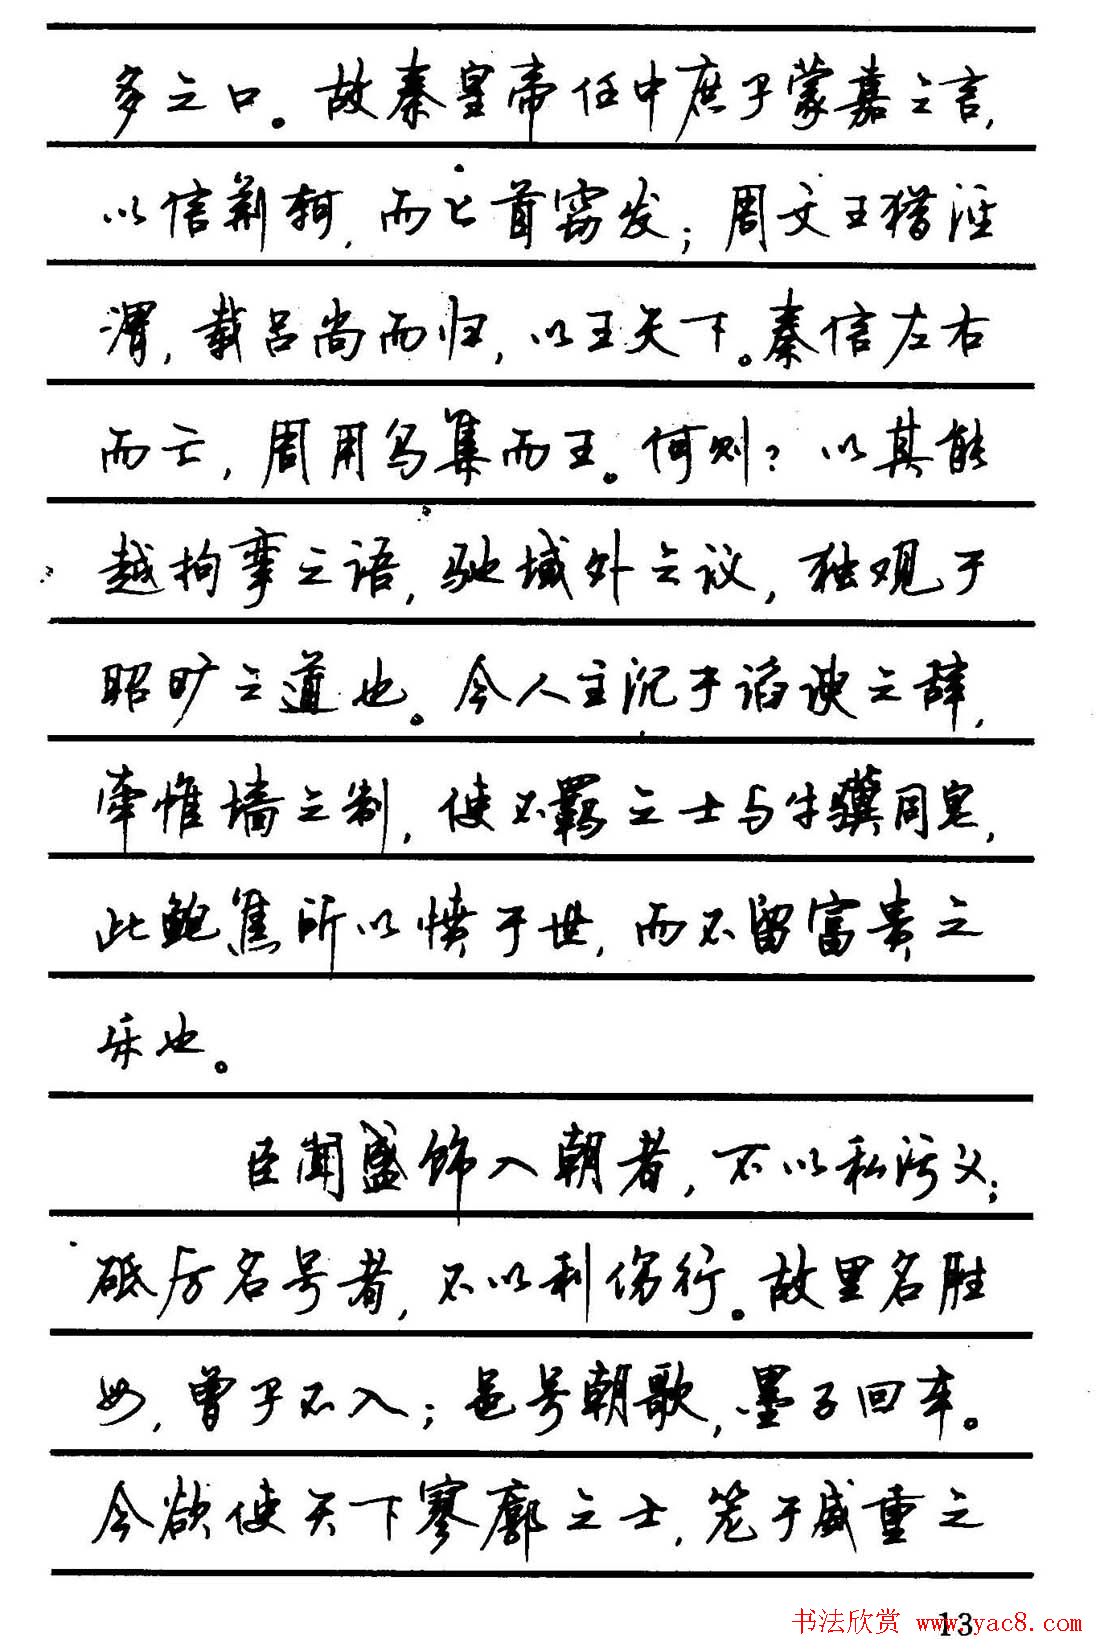 多之口。故秦皇帝任中庶子蒙嘉之言，
以信荆轲，而匕首窃发；周文王猎泾
渭，载吕尚而归，以王天下。秦信左右
而亡，周用乌集而王。何则？以其能
越拘挛之语，驰域外之议，独观于
昭旷之道也。今人主沉于谄谀之辞，
牵帷墙之制，使不羁之士与牛骥同皂，
此鲍焦所以愤于世，而不留富贵之
乐也。
臣闻盛饰入朝者，不以私污义；
砥厉名号者，不以利伤行。故里名胜
母，曾子不入；邑号朝歌，墨子回车。
今欲使天下寥廓之士，笼于威重之
13
书法欣赏 www.yac8.com